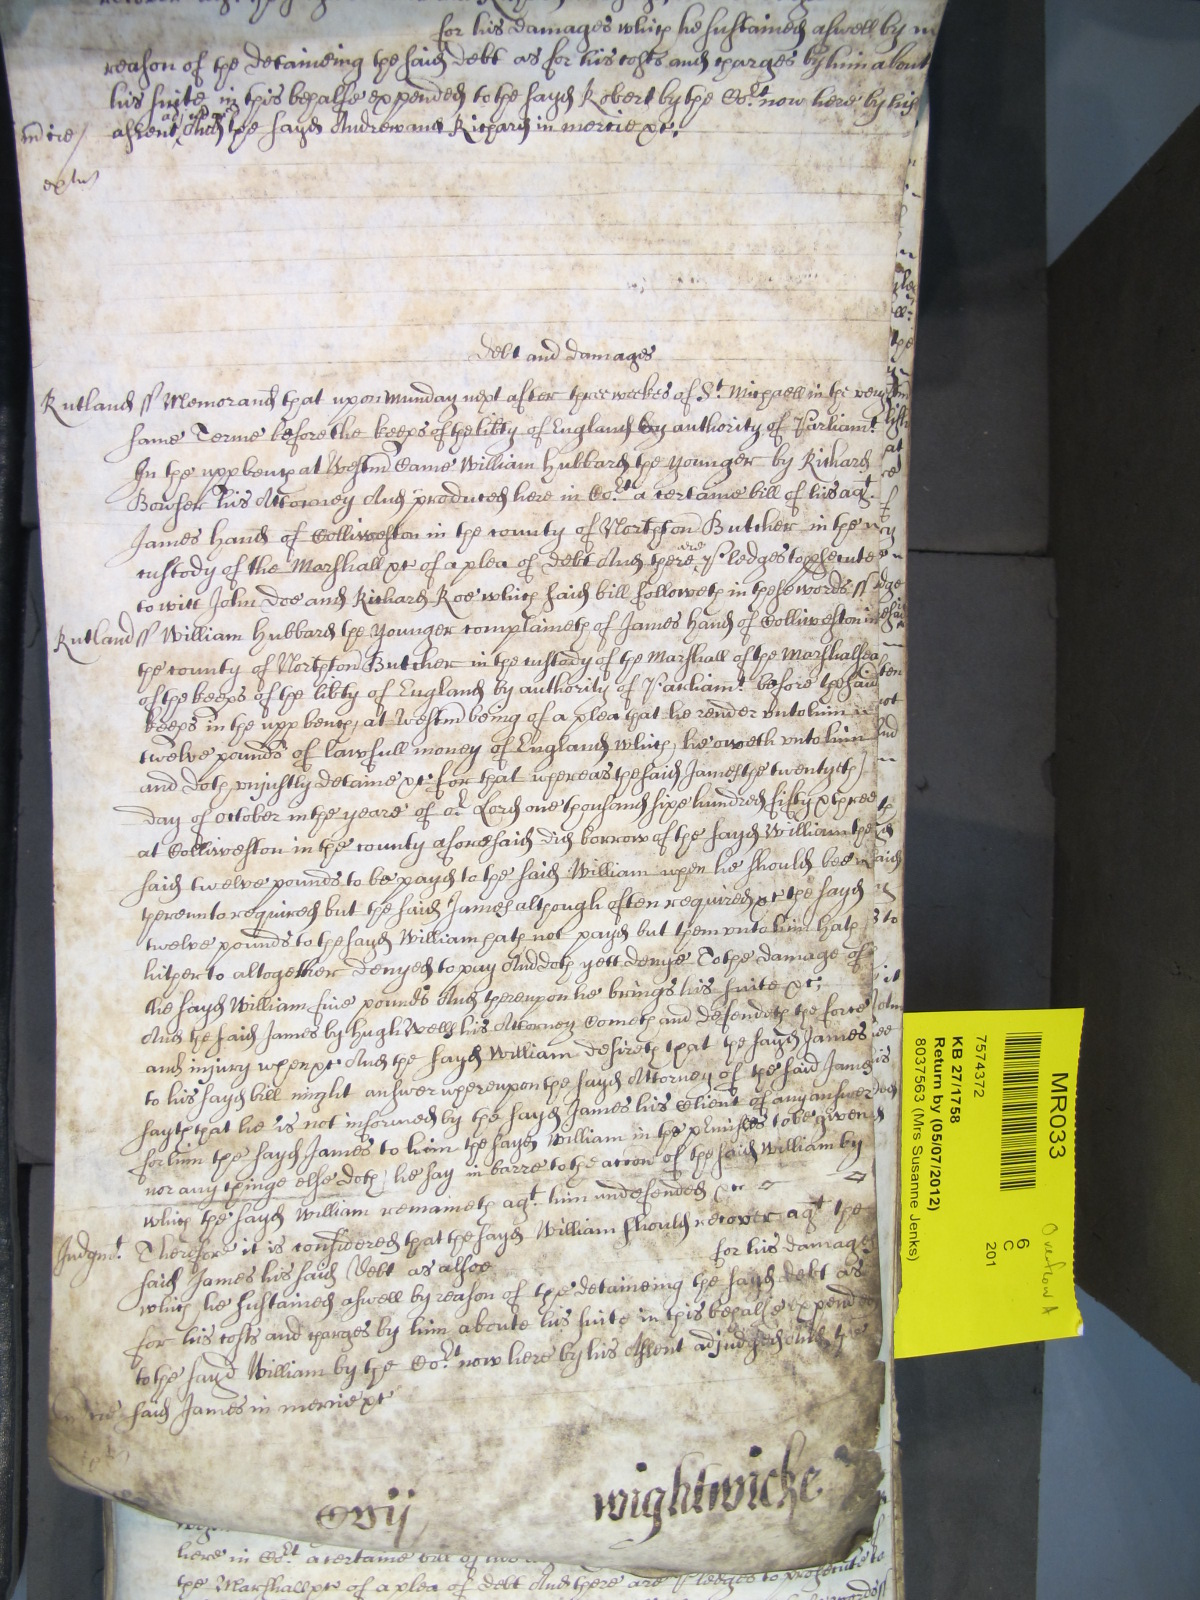 for his damages which he sustained aswell by
reason of the detaineing the said debt as for his costs and charges by him about
his suite in this behalfe expended to the sayd Robert by the Co.rt now here by his
assent And the sayd Andrew and Richard in mercie &c.
exw
Debt and damages
Rutland ss Memorand that upon Munday next after three weekes of St. Michaell in the very
same Terme before the keeps of the libty of England by authority of Parliamt.
In the upp bench at Westm Came William Hubbard the younger by Richard
Bowser his Attorney And produced here in Co.rt a certaine bill of his agt.
James Hand of Colliweston in the county of Northton Butcher in the
custody of the Marshall &c of a plea of debt And there are Pledges to p'secute
to witt John Doe and Richard Roe which said bill followeth in these words ss
Rutland ss William Hubbard the younger complaineth of James Hand of Colliweston in
the county of Northton Butcher in the custody of the Marshall of the Marshalsea
of the keeps of the libty of England by authority of Parliamt. before the said
keeps in the upp bench at Westm being of a plea that he render unto him
twelve pounds of lawfull money of England which he oweth unto him
and doth unjustly detaine &c for that whereas the said James the twentyeth
day of october in the yeare of or. Lord one thousand sixe hundred fifty & three
at Colliweston in the county aforesaid did borrow of the sayd William the
said twelve pounds to be payd to the said William when he should bee
thereunto required but the said James although often required &c the sayd
twelve pounds to the sayd William hath not payd but them unto him hath
hitherto altogether denyed to pay And doth yett denye To the damage of
the sayd William five pounds And thereupon he brings his suite &c;
And the said James by Hugh Wells his Attorney Cometh and defendeth the force
and injury when &c And the sayd William desireth that the sayd James
to his sayd bill might answer whereupon the sayd Attorney of the said James
sayth that he is not informed by the sayd James his Client of any answer
for him the sayd James to him the sayd William in the pmisses to be given
nor any thinge else doth he say in barre to the accon of the said William by
which the sayd William remaineth agt. him undefended &c
Judgmt. Therefore it is considered that the sayd William should recover agt the
said James his said Debt as alsoe for his damages
which he sustained aswell by reason of the detaineing the sayd debt as
for his costs and charges by him aboute his suite in this behalfe expended
to the sayd William by the Co.rt now here by his Assent adjudged And the
said James in mercie &c
wightwicke
here in Co.rt a certaine bill of his
the Marshall &c of a plea of debt And there are Pledges to prosecute to
MR033
7574372
KB 27/1758
Return by (05/07/2012)
8037563 (Mrs Susanne Jenks)
6
C
201
Overflow A